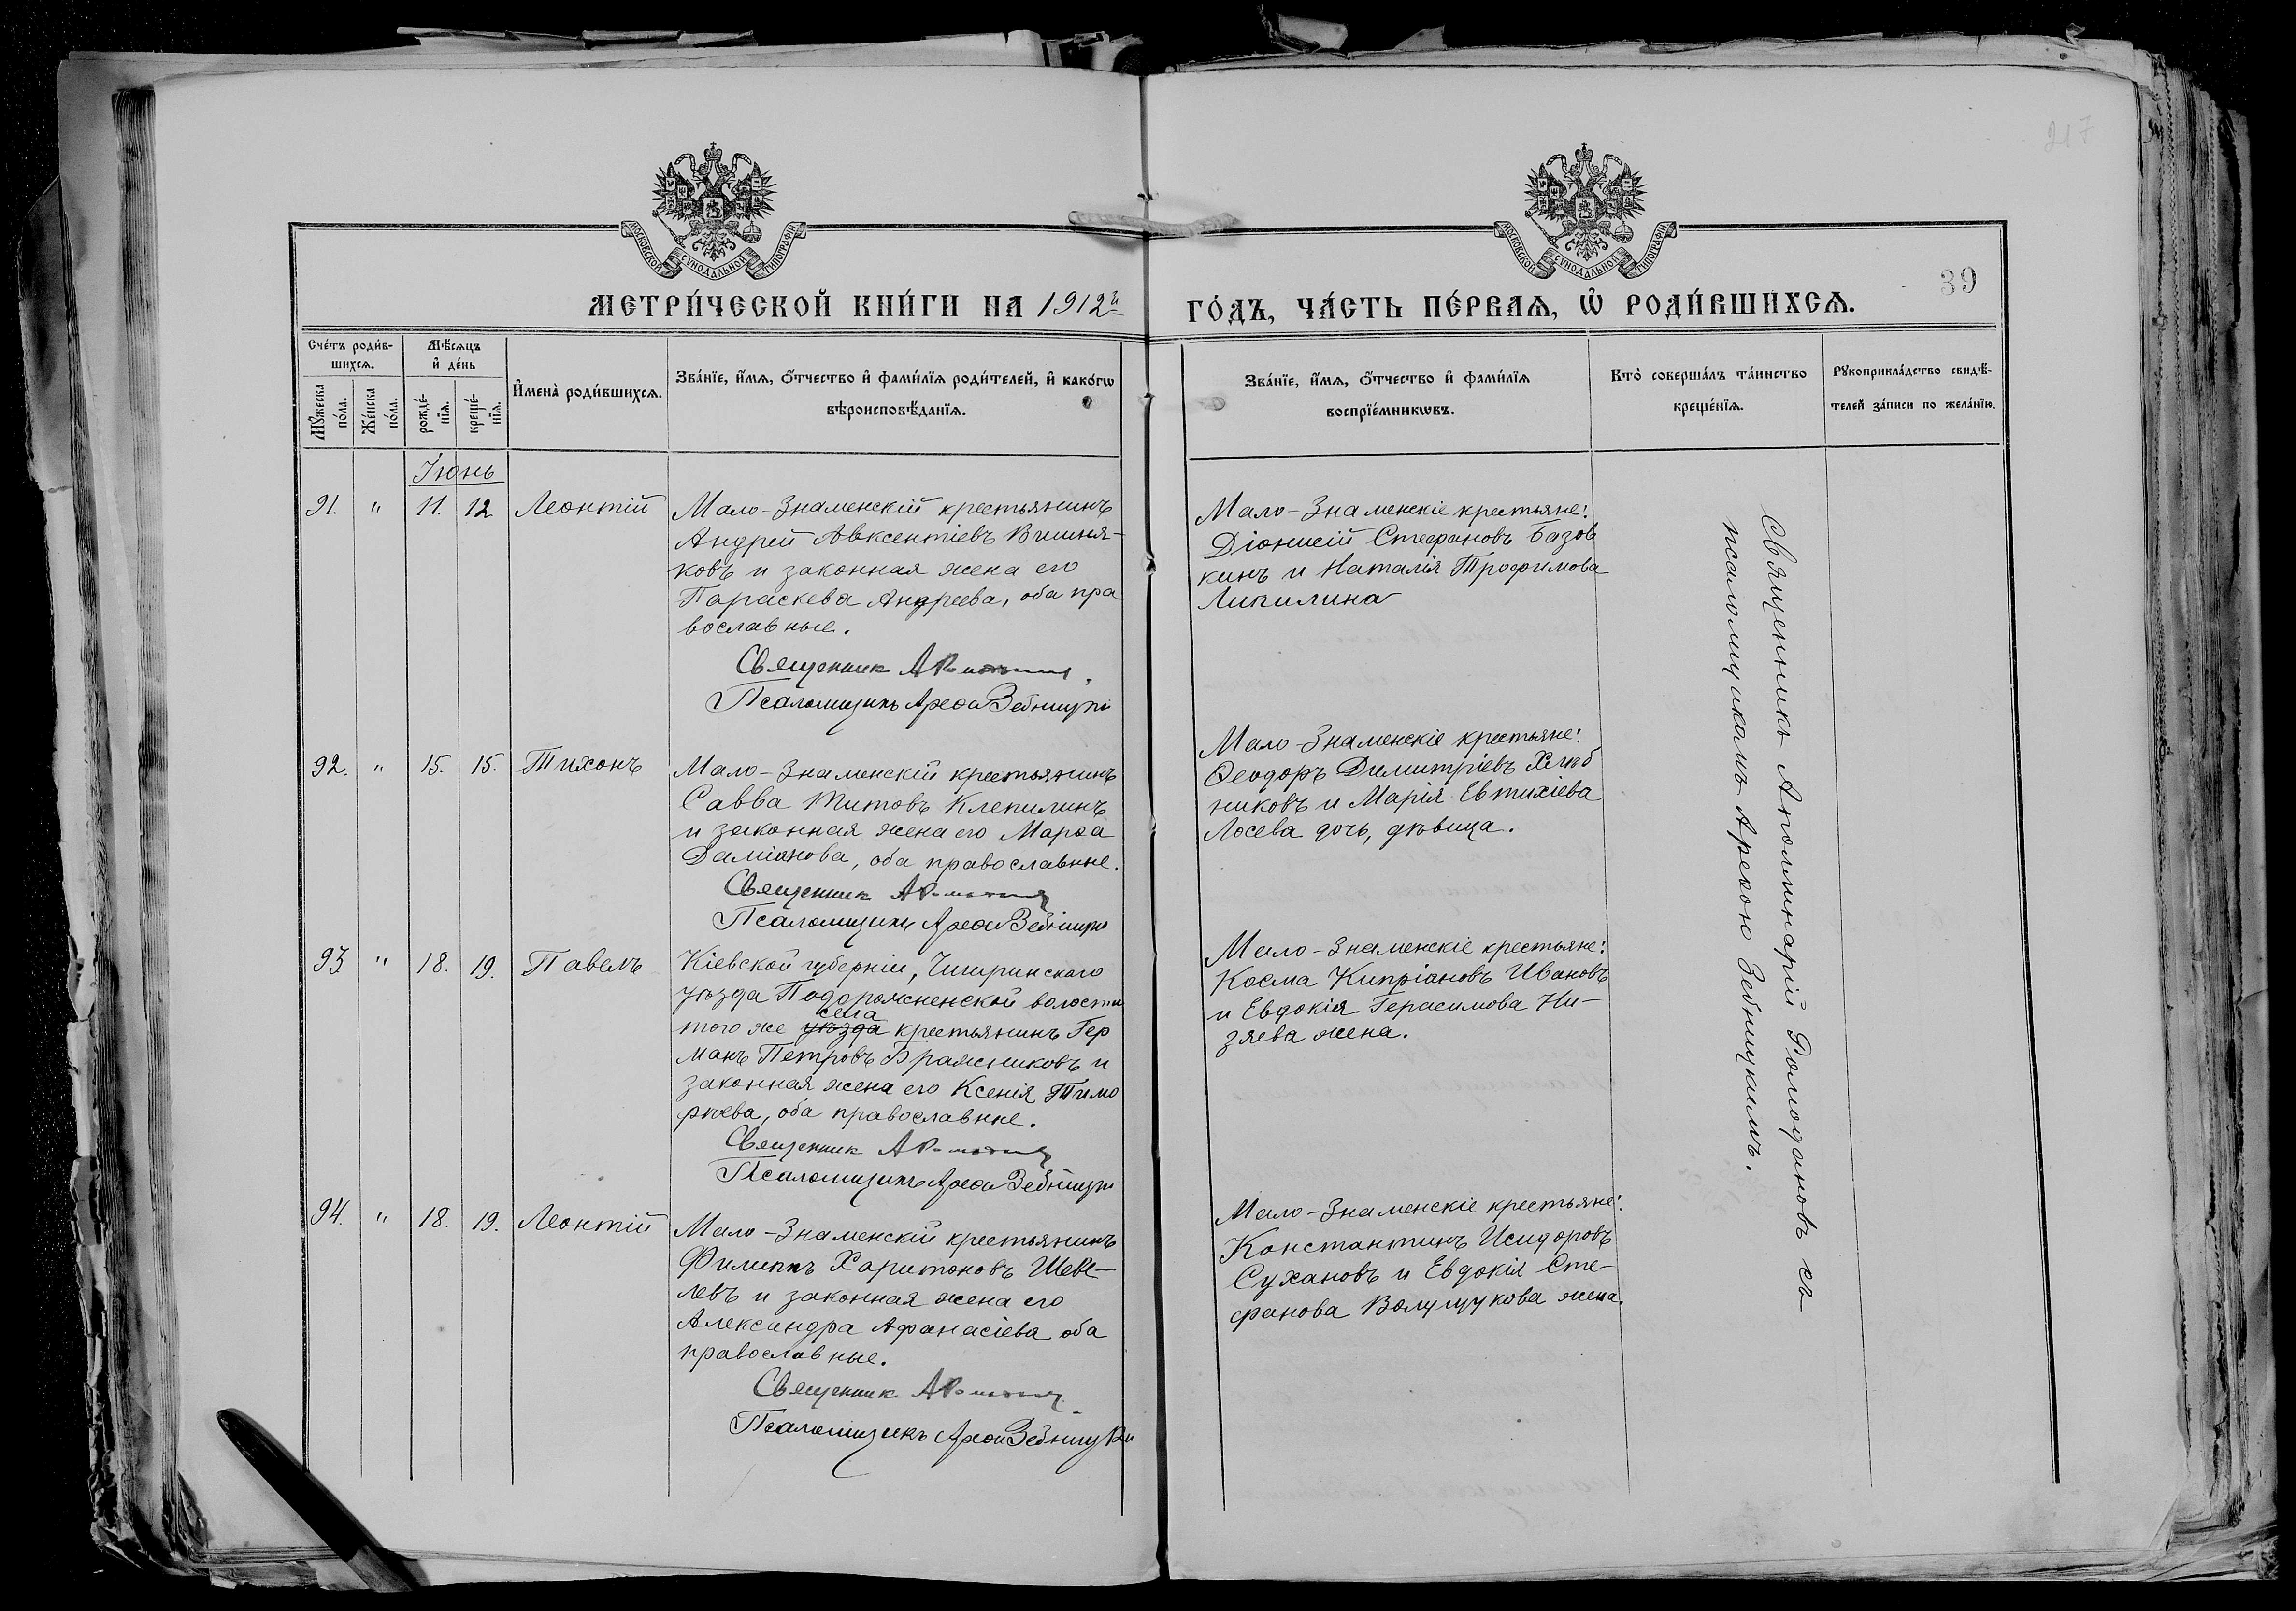 217
39
МОСКОВСКОЙ СѴНОДАЛЬНОЙ ТИПОГРАФІИ
МОСКОВСКОЙ СѴНОДАЛЬНОЙ ТИПОГРАФІИ
МЕТРИ́ЧЕСКОЙ КНИ́ГИ НА 1912й
ГО́ДЪ, ЧА́СТЬ ПЕ́РВАѦ, Ѡ҆ РОДИ́ВШИХСѦ.
Сче́тъ роди́в-
шихсѧ.
Мꙋ́жеска по́ла.
Же́нска по́ла.
Мѣ́сѧцъ
и҆ де́нь
рожде́-
нїѧ.
креще́-
нїѧ.
И҆мена̀ роди́вшихсѧ.
Зва́нїе, и҆́мѧ, ѻ҆́тчество и҆ фами́лїѧ роди́телей, и҆ како́гѡ
вѣроисповѣ́данїѧ.
Зва́нїе, и҆́мѧ, ѻ҆́тчество и҆ фами́лїѧ
воспрїе́мникѡвъ.
Кто̀ соверша́лъ та́инство
креще́нїѧ.
Рꙋкоприкла́дство свидѣ́-
телей за́писи по жела́нїю.
Іюнь
91. " 11. 12 Леонтій
Мало-Знаменскій крестьянинъ
Андрей Авксентіевъ Вишня-
ковъ и законная жена его
Параскева Андреева, оба пра
вославные.
Священник А
Псаломщикъ Арефа Зебницкій
Мало-Знаменскіе крестьяне:
Діонисій Стефановъ Базов
кинъ и Наталія Трофимова
Липилина
92. " 15. 15. Тихонъ
Мало-Знаменскій крестьянинъ
Савва Титовъ Клепилинъ
и законная жена его Марѳа
Даміанова, оба православные.
Священник А
Псаломщикъ Арефа Зебницкій
Мало-Знаменскіе крестьяне:
Ѳеодоръ Димитріевъ Хлѣб
никовъ и Марія Евтихіева
Лосева дочь, дѣвица.
93 " 18. 19. Павелъ
Кіевской губерніи, Чигиринскаго
уѣзда Подорожненской волости
села
того же уѣзда крестьянинъ Гер
манъ Петровъ Бражниковъ и
законная жена его Ксенія Тимо
фѣева, оба православные.
Священник А
Псаломщикъ Арефа Зебницкій
Мало-Знаменскіе крестьяне:
Косма Кипріановъ Ивановъ
и Евдокія Герасимова Ни-
зяева жена.
94. " 18. 19. Леонтій
Мало-Знаменскій крестьянинъ
Филиппъ Харитоновъ Шеве-
левъ и законная жена его
Александра Афанасіева оба
православные.
Священник А
Псаломщикъ Арефа Зебницкій
Мало-Знаменскіе крестьяне:
Константинъ Исидоровъ
Сухановъ и Евдокія Сте-
фанова жена.
Священникъ Аполлинарій Ромодановъ съ
псаломщикомъ Арефою Зебницкимъ.